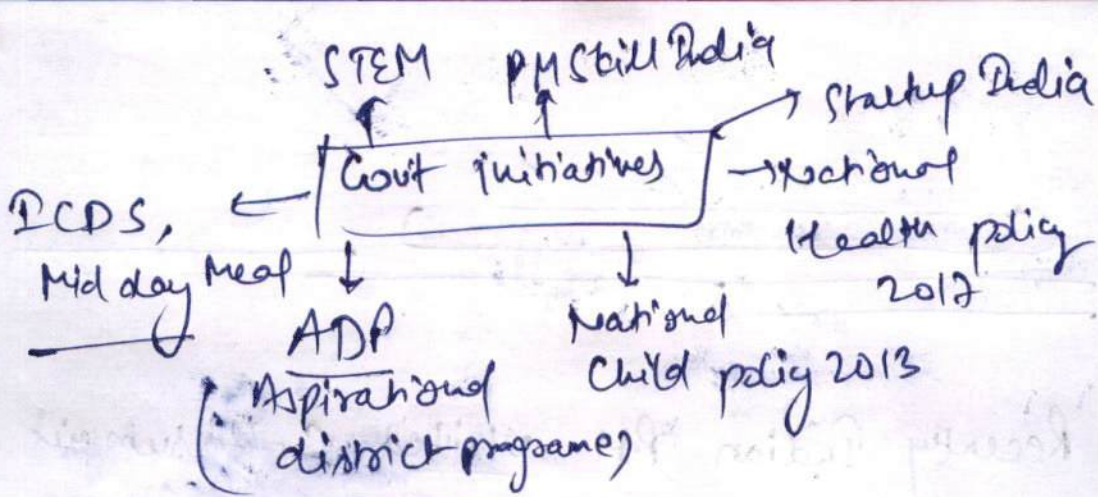 STEM PM Skill India
Startup India
Govt initiatives
National
Health policy
2017
ICDS,
Mid day Meal
ADP
(Aspirational
district programe)
National
Child policy 2013
Recently Indian